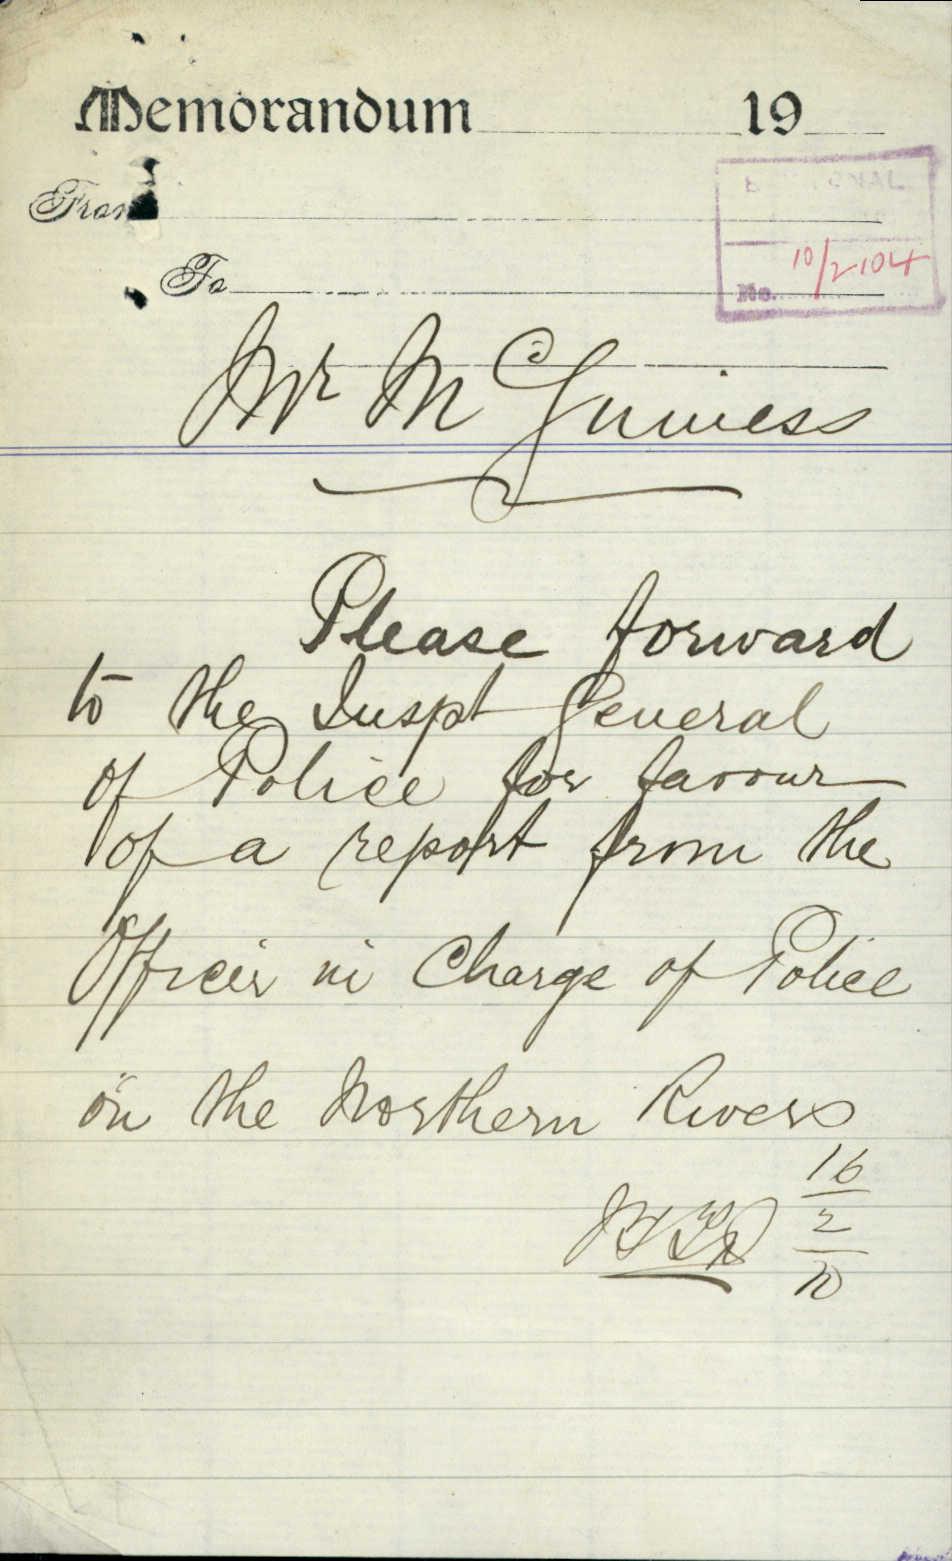 Memorandum 19
From
To
No. 10/2104
Mr McGuiness
Please forward
to the Inspt General
of Police for favour
of a report from the
Officer in Charge of Police
on the Northern Rivers
16
2
10